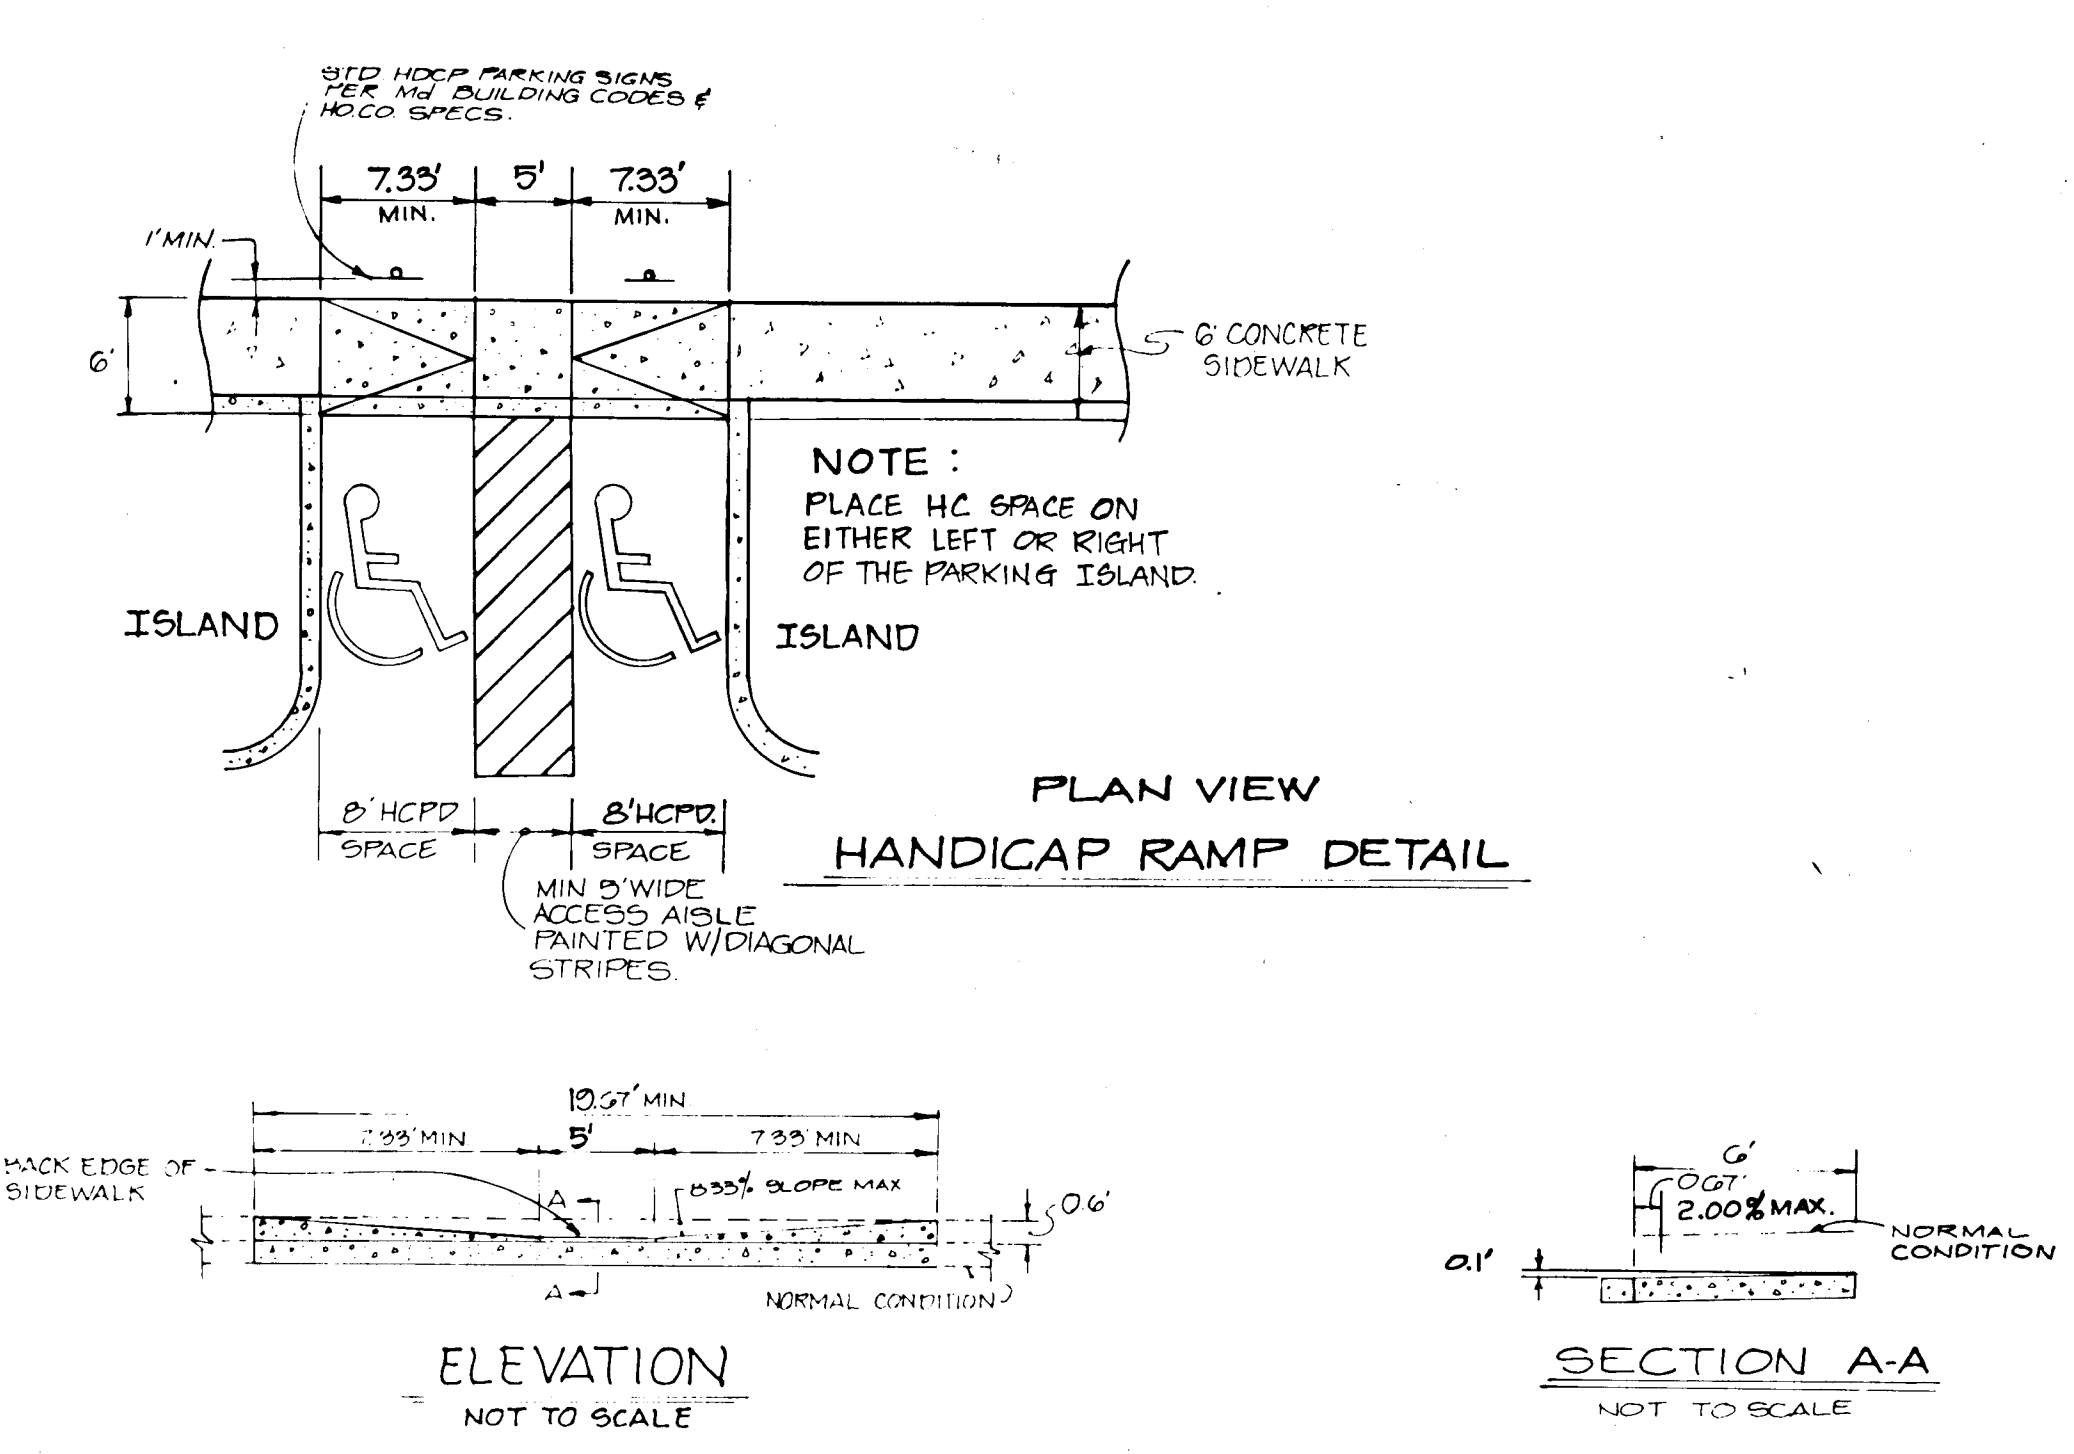 STD. HDCP PARKING SIGNS
PER Md BUILDING CODES &
HO.CO. SPECS.
7.33'
5'
7.33'
MIN.
MIN.
1' MIN.
6'
6' CONCRETE
SIDEWALK
NOTE :
PLACE HC SPACE ON
EITHER LEFT OR RIGHT
OF THE PARKING ISLAND.
ISLAND
ISLAND
8' HCPD
SPACE
8' HCPD.
SPACE
MIN 5' WIDE
ACCESS AISLE
PAINTED W/DIAGONAL
STRIPES.
PLAN VIEW
HANDICAP RAMP DETAIL
19.67' MIN
7.33' MIN
5'
7.33' MIN
BACK EDGE OF
SIDEWALK
A
8.33% SLOPE MAX
0.6'
A
NORMAL CONDITION
ELEVATION
NOT TO SCALE
6'
0.67'
2.00% MAX.
NORMAL
CONDITION
0.1'
SECTION A-A
NOT TO SCALE